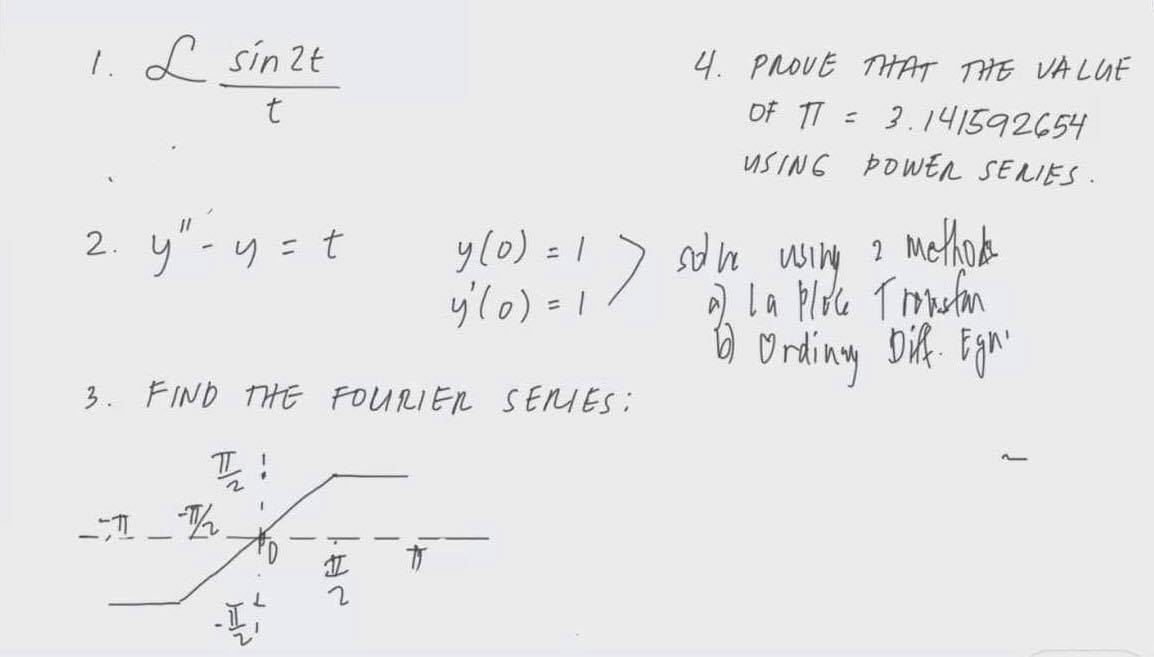 1. ℒ sin 2t
t
4. PROVE THAT THE VALUE
OF π = 3.141592654
USING POWER SERIES.
2. y" - y = t
y(0) = 1
y'(0) = 1
solve using 2 methods
a) La Place Transfm
b) Ordinary Diff. Eqn.
3. FIND THE FOURIER SERIES:
π/2
-π -π/2 0 π/2 π
-π/2